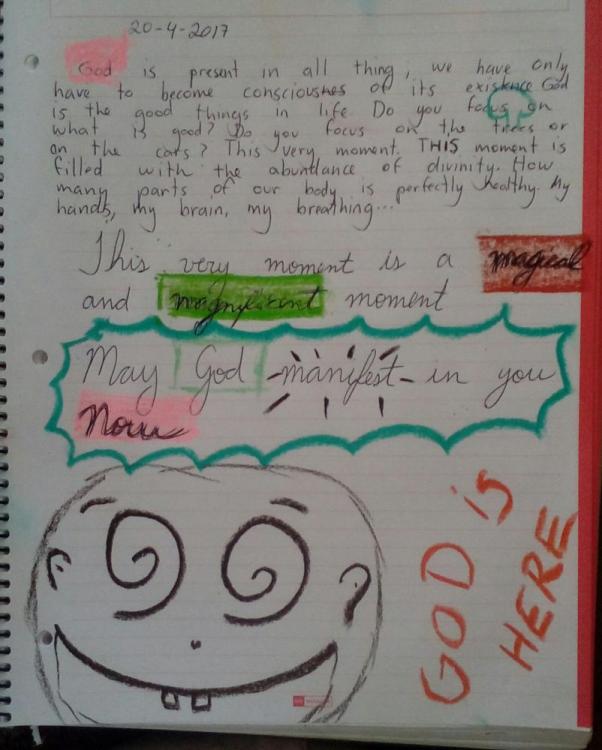 20-4-2017
God is present in all thing, we have only
have to become consciousnes of its existence God
is the good things in life Do you focus on
what is good? Do you focus on the trees or
on the cars? This very moment. THIS moment is
filled with the abundance of divinity. How
many parts of our body is perfectly healthy. My
hands, my brain, my breathing...
This very moment is a magical
and magnificent moment
May God manifest in you
Now
GOD is
HERE